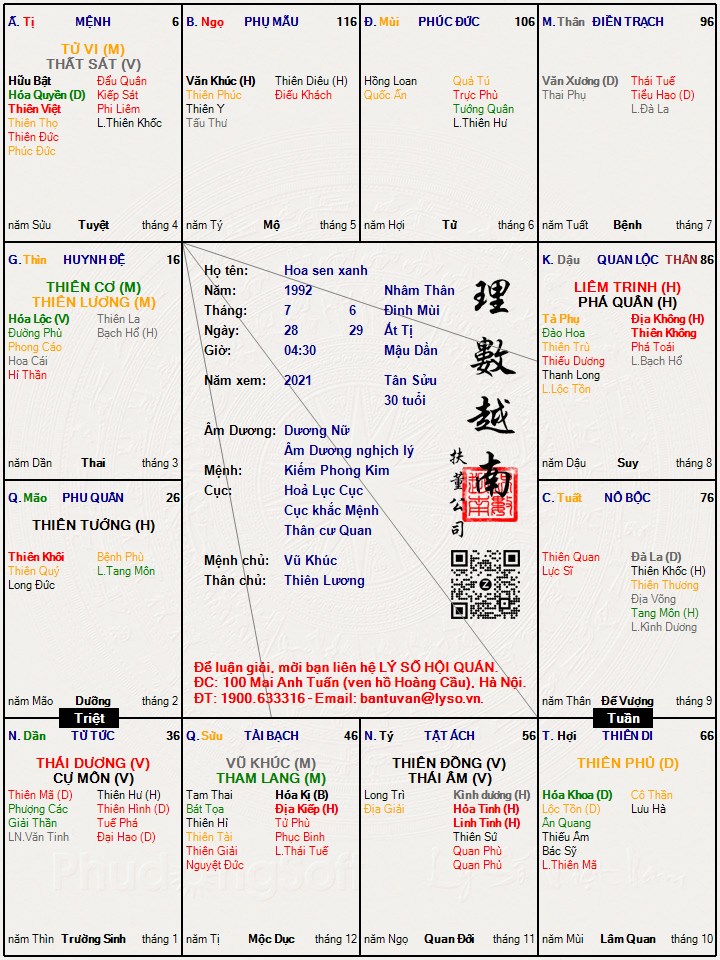 Ấ. Tị MỆNH 6
TỬ VI (M)
THẤT SÁT (V)
Hữu Bật Đẩu Quân
Hóa Quyền (D) Kiếp Sát
Thiên Việt Phi Liêm
Thiên Thọ L.Thiên Khốc
Thiên Đức
Phúc Đức
năm Sửu Tuyệt tháng 4
B. Ngọ PHỤ MẪU 116
Văn Khúc (H) Thiên Diêu (H)
Thiên Phúc Điếu Khách
Thiên Y
Tấu Thư
năm Tý Mộ tháng 5
Đ. Mùi PHÚC ĐỨC 106
Hồng Loan Quả Tú
Quốc Ấn Trực Phù
Tướng Quân
L.Thiên Hư
năm Hợi Tử tháng 6
M. Thân ĐIỀN TRẠCH 96
Văn Xương (D) Thái Tuế
Thai Phụ Tiểu Hao (D)
L.Đà La
năm Tuất Bệnh tháng 7
G. Thìn HUYNH ĐỆ 16
THIÊN CƠ (M)
THIÊN LƯƠNG (M)
Hóa Lộc (V) Thiên La
Đường Phù Bạch Hổ (H)
Phong Cáo
Hoa Cái
Hỉ Thần
năm Dần Thai tháng 3
Họ tên: Hoa sen xanh
Năm: 1992 Nhâm Thân
Tháng: 7 6 Đinh Mùi
Ngày: 28 29 Ất Tị
Giờ: 04:30 Mậu Dần
Năm xem: 2021 Tân Sửu
30 tuổi
Âm Dương: Dương Nữ
Âm Dương nghịch lý
Mệnh: Kiếm Phong Kim
Cục: Hoả Lục Cục
Cục khắc Mệnh
Thân cư Quan
Mệnh chủ: Vũ Khúc
Thân chủ: Thiên Lương
理數越南
扶董公司
Để luận giải, mời bạn liên hệ LÝ SỐ HỘI QUÁN.
ĐC: 100 Mai Anh Tuấn (ven hồ Hoàng Cầu), Hà Nội.
ĐT: 1900.633316 - Email: bantuvan@lyso.vn.
K. Dậu QUAN LỘC THÂN 86
LIÊM TRINH (H)
PHÁ QUÂN (H)
Tả Phụ Địa Không (H)
Đào Hoa Thiên Không
Thiên Trù Phá Toái
Thiếu Dương L.Bạch Hổ
Thanh Long
L.Lộc Tồn
năm Dậu Suy tháng 8
Q. Mão PHU QUÂN 26
THIÊN TƯỚNG (H)
Thiên Khôi Bệnh Phù
Thiên Quý L.Tang Môn
Long Đức
năm Mão Dưỡng tháng 2
C. Tuất NÔ BỘC 76
Thiên Quan Đà La (D)
Lực Sĩ Thiên Khốc (H)
Thiên Thương
Địa Võng
Tang Môn (H)
L.Kình Dương
năm Thân Đế Vượng tháng 9
Triệt
Tuần
N. Dần TỬ TỨC 36
THÁI DƯƠNG (V)
CỰ MÔN (V)
Thiên Mã (D) Thiên Hư (H)
Phượng Các Thiên Hình (D)
Giải Thần Tuế Phá
LN.Văn Tinh Đại Hao (D)
năm Thìn Trường Sinh tháng 1
Q. Sửu TÀI BẠCH 46
VŨ KHÚC (M)
THAM LANG (M)
Tam Thai Hóa Kị (B)
Bát Tọa Địa Kiếp (H)
Thiên Hỉ Tử Phù
Thiên Tài Phục Binh
Thiên Giải L.Thái Tuế
Nguyệt Đức
năm Tị Mộc Dục tháng 12
N. Tý TẬT ÁCH 56
THIÊN ĐỒNG (V)
THÁI ÂM (V)
Long Trì Kình dương (H)
Địa Giải Hỏa Tinh (H)
Linh Tinh (H)
Thiên Sứ
Quan Phù
Quan Phủ
năm Ngọ Quan Đới tháng 11
T. Hợi THIÊN DI 66
THIÊN PHỦ (D)
Hóa Khoa (D) Cô Thần
Lộc Tồn (D) Lưu Hà
Ân Quang
Thiếu Âm
Bác Sỹ
L.Thiên Mã
năm Mùi Lâm Quan tháng 10